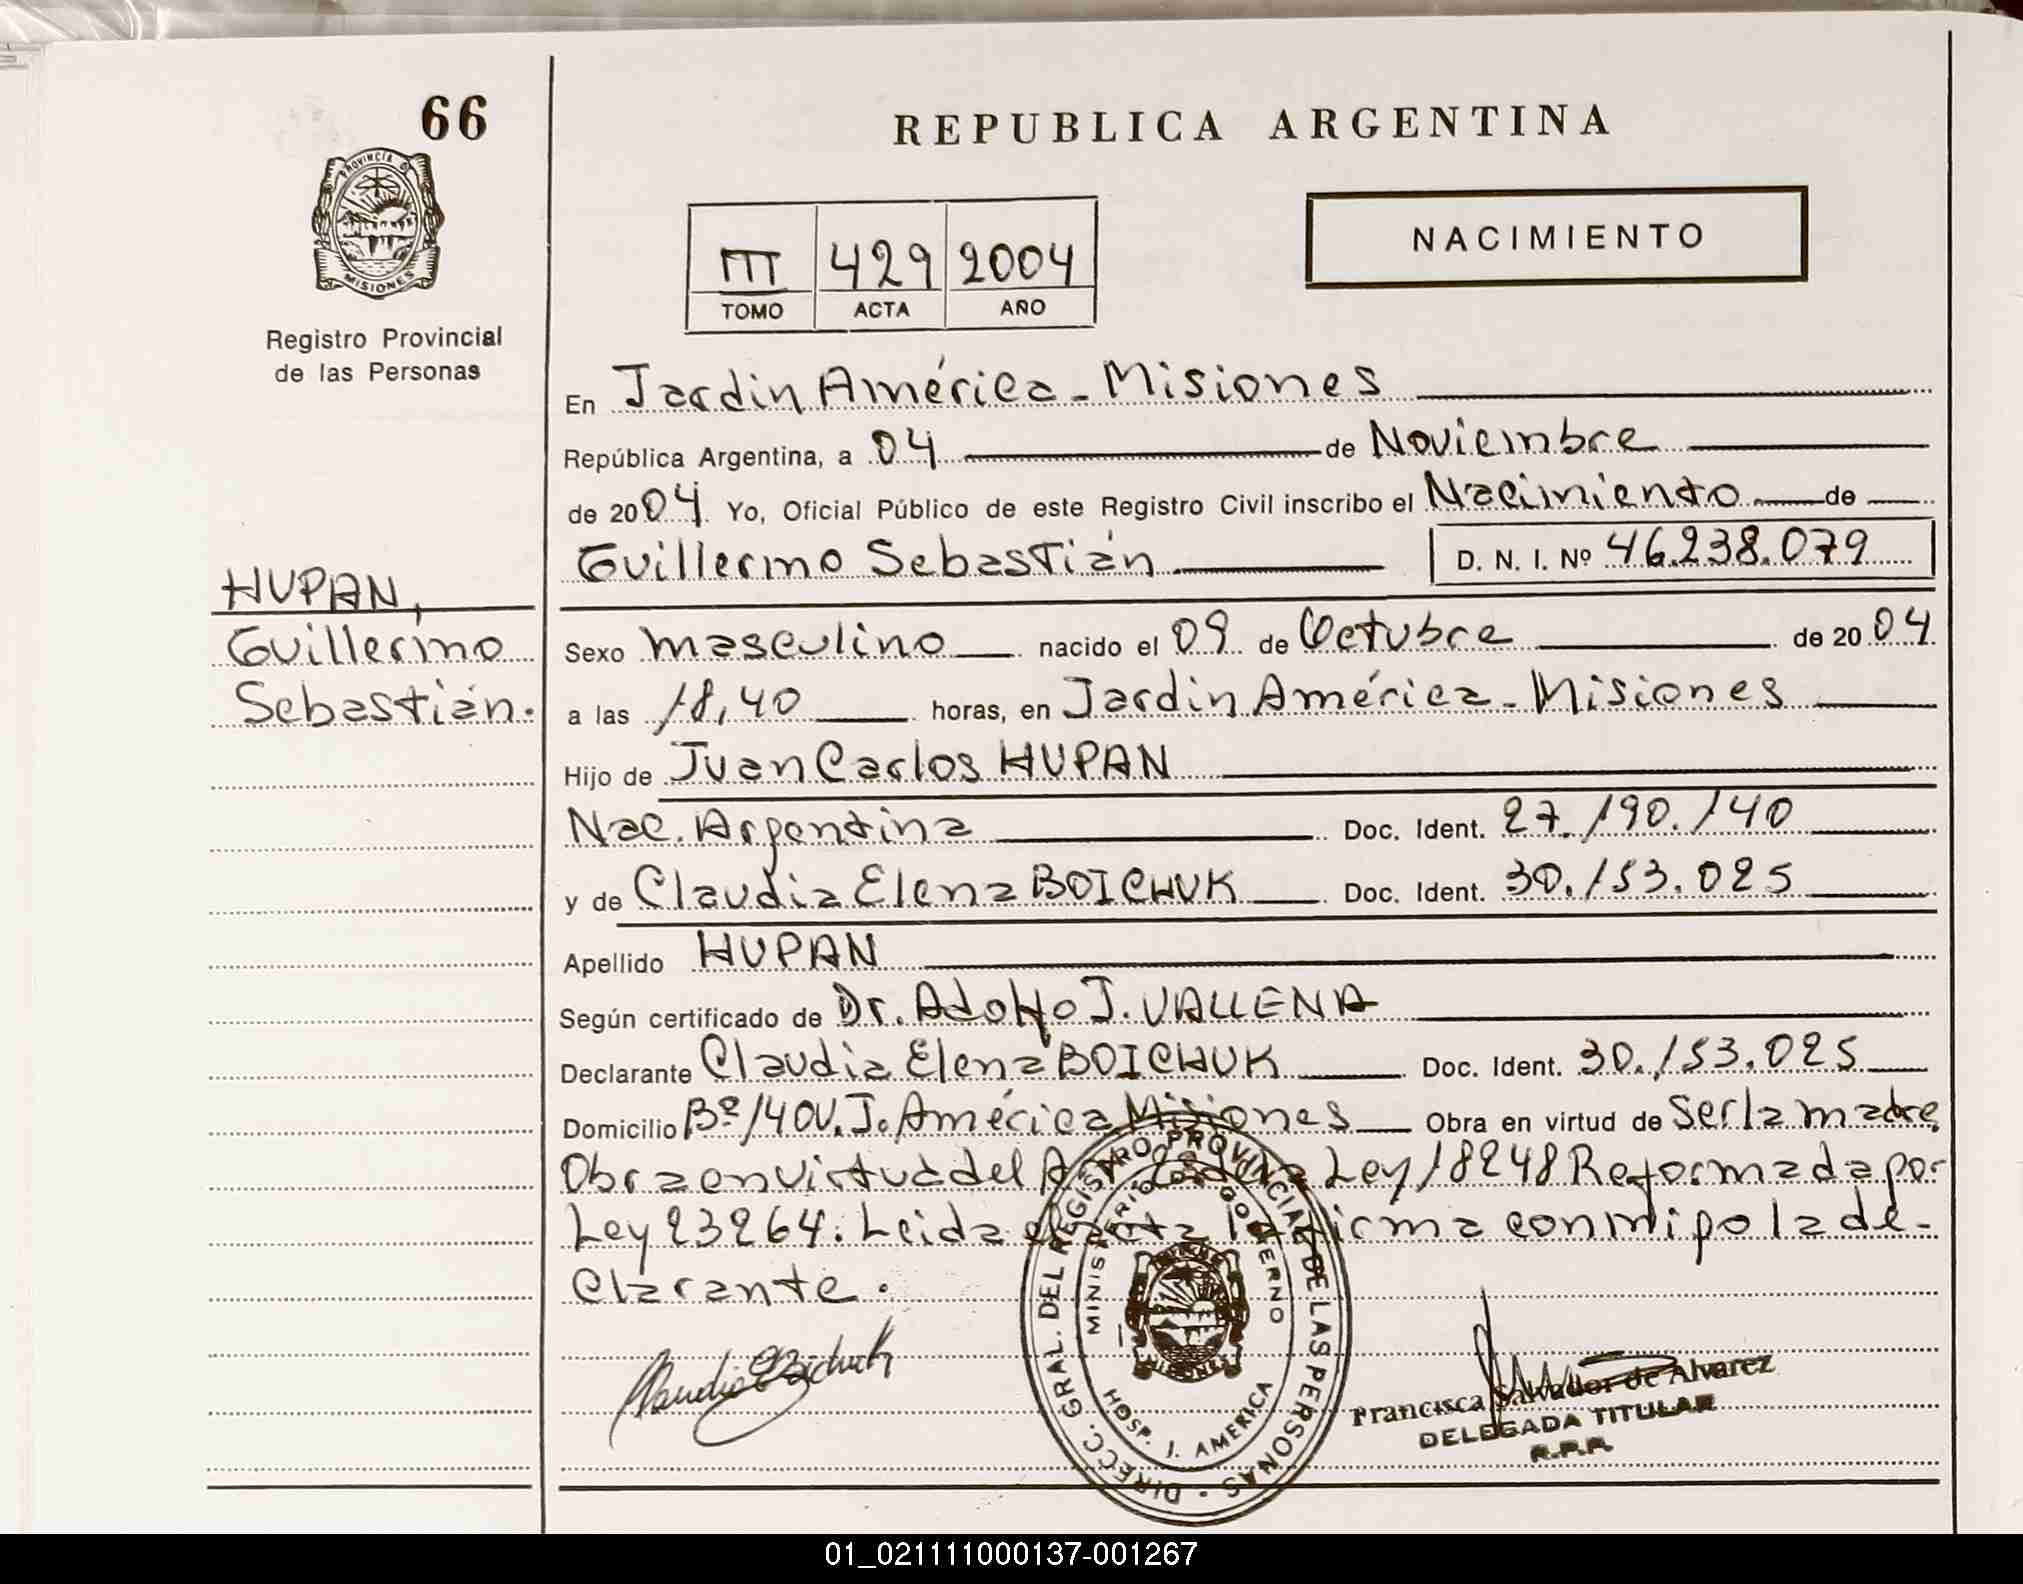 66
REPUBLICA ARGENTINA
PROVINCIA DE
MISIONES
III 429 2004
TOMO ACTA AÑO
NACIMIENTO
Registro Provincial
de las Personas
En Jardin América - Misiones
República Argentina, a 04 de Noviembre
de 2004 Yo, Oficial Público de este Registro Civil inscribo el Nacimiento de
Guillermo Sebastián D. N. I. Nº 46.238.079
HUPAN,
Guillermo
Sebastián.
Sexo masculino nacido el 09 de Octubre de 2004
a las 18,40 horas, en Jardin América - Misiones
Hijo de Juan Carlos HUPAN
Nac. Argentina Doc. Ident. 27.190.140
y de Claudia Elena BOICHUK Doc. Ident. 30.153.025
Apellido HUPAN
Según certificado de Dr. Adolfo J. VALLENA
Declarante Claudia Elena BOICHUK Doc. Ident. 30.153.025
Domicilio Bº 140V. J. América Misiones Obra en virtud de ser la madre,
Obra en virtud del Ley 18248 Reformada por
Ley 23264. Leida el acta la firma conmipo la de-
clarante.
DIRECC. GRAL. DEL REGISTRO PROVINCIAL DE LAS PERSONAS
MINISTERIO DE GOBIERNO
MISIONES
HOSP. J. AMERICA
Francisca Salvador de Alvarez
DELEGADA TITULAR
R.P.P.
01_021111000137-001267